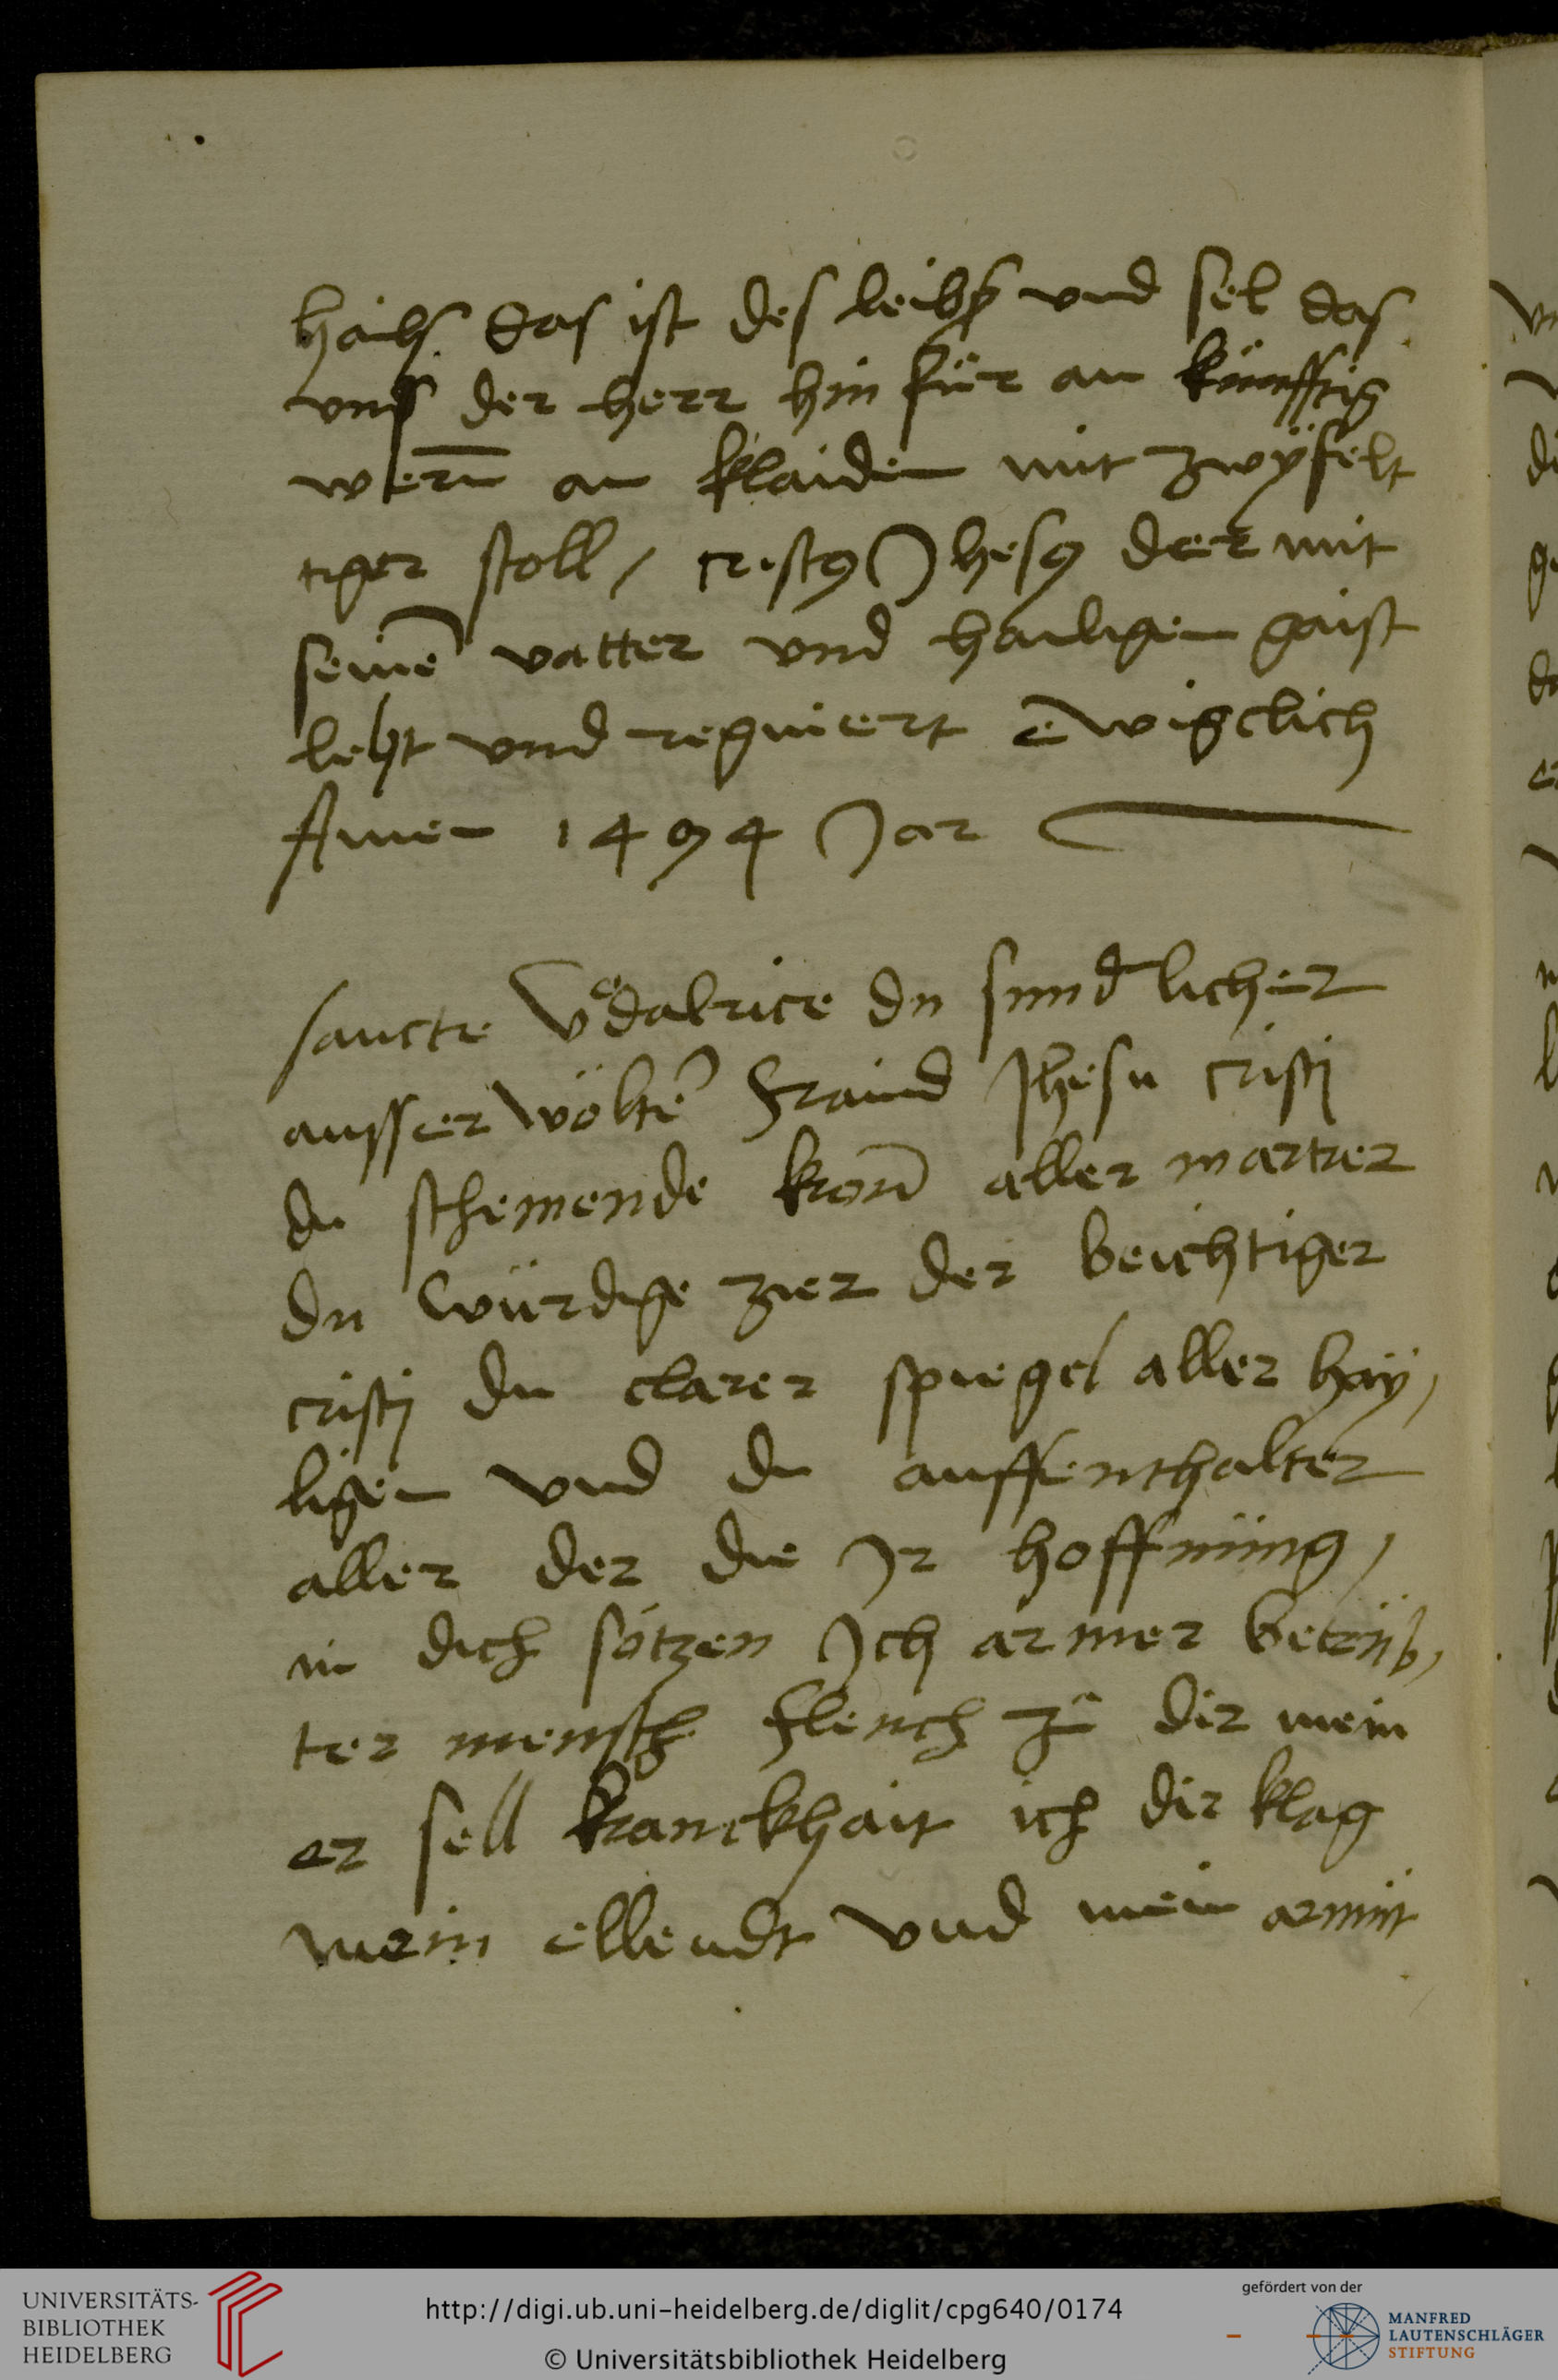 hails das ist des leibs und sel das
unß der herr hin für an künfftig
wern̄ an klaiden mit zwÿfelt
tiger stoll / cristꝯ Jhesꝯ der mit
seinē vatter vnd hailigen gaist
lebt vnd regniert ewigclich
Amen 1494 Jar
sancte Vͦdalrice du sundlicher
ausserwöltē fraind Jhesu cristj
du scheinende kron̄ aller martrer
du würdige zier der beichtiger
cristj du clarer spiegel aller haÿ,
ligen vnd du auffenthalter
aller der die Jr hoffnüng,
in dich sötzen Jch armer betrüb,
ter mensch fleuch zu᷑ dir mein
er sell kranckhait ich dir klag
mein ellendt vnd mein armüt
UNIVERSITÄTS-
BIBLIOTHEK
HEIDELBERG
http://digi.ub.uni-heidelberg.de/diglit/cpg640/0174
© Universitätsbibliothek Heidelberg
gefördert von der
MANFRED
LAUTENSCHLÄGER
STIFTUNG